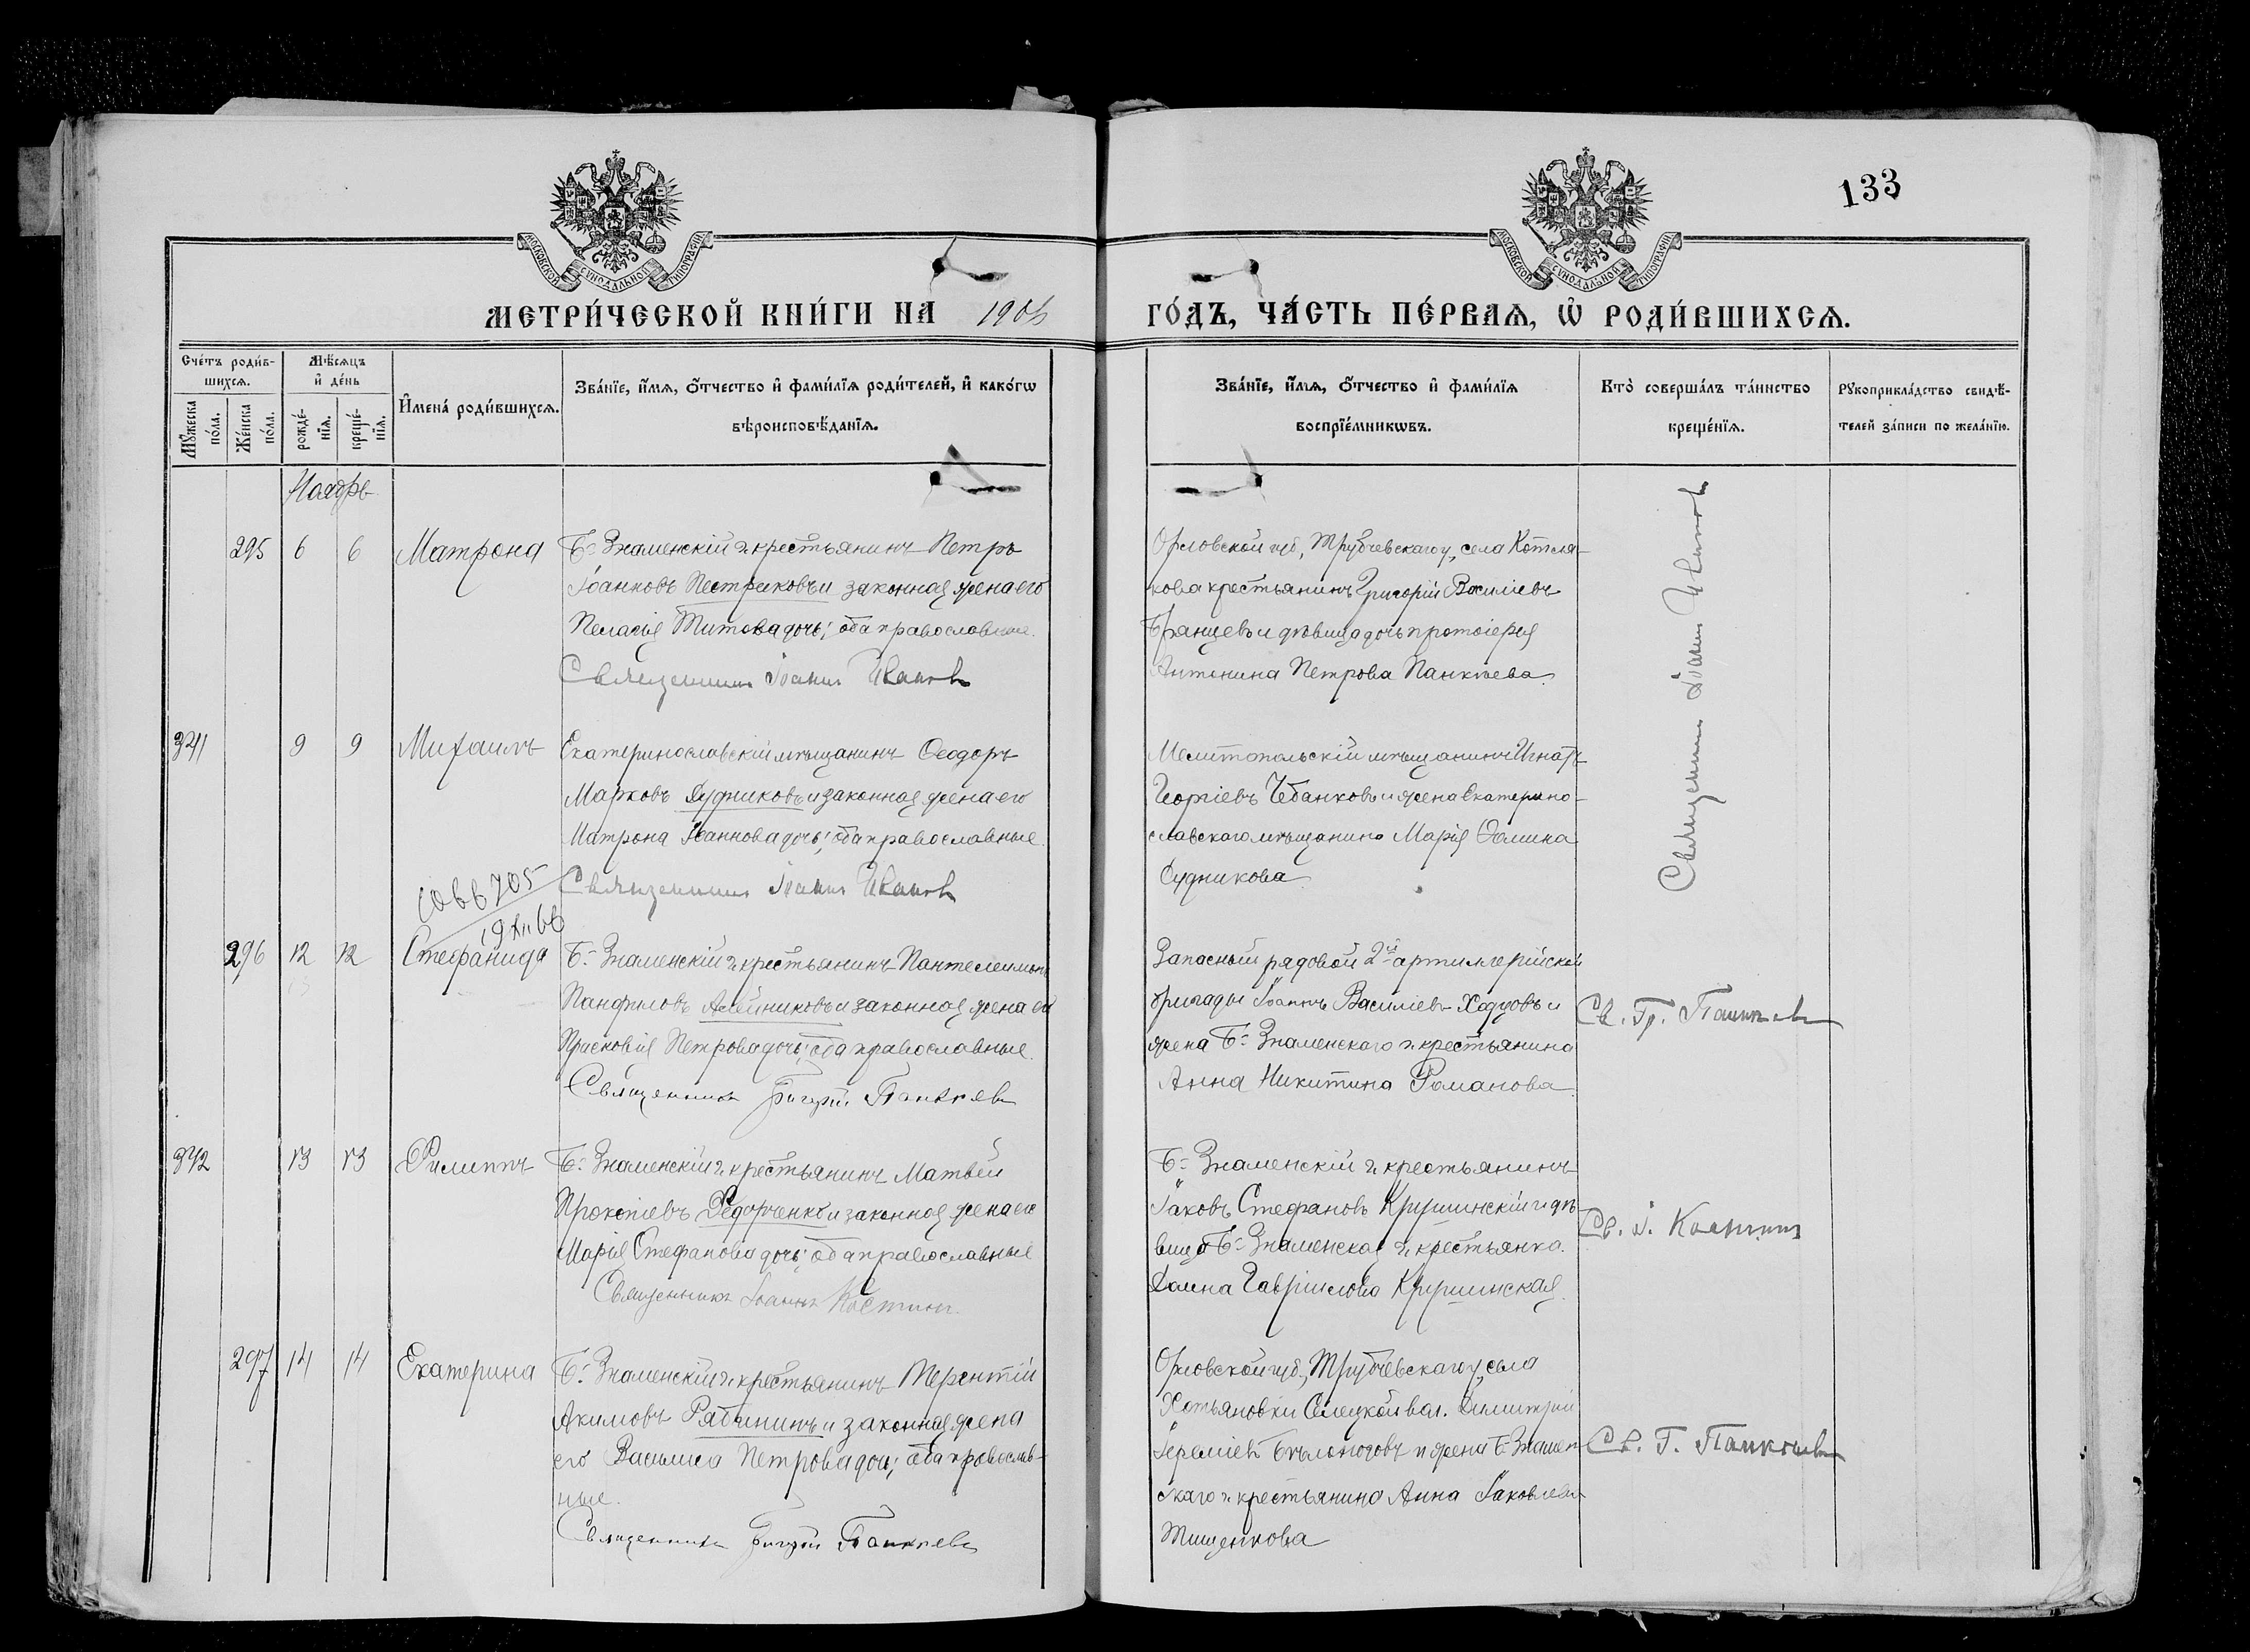 133
МОСКОВСКОЙ СѴНОДАЛЬНОЙ ТИПОГРАФІИ
МОСКОВСКОЙ СѴНОДАЛЬНОЙ ТИПОГРАФІИ
МЕТРИ́ЧЕСКОЙ КНИ́ГИ НА 1906 ГО́ДЪ, ЧА́СТЬ ПЕ́РВАѦ, Ѡ҆ РОДИ́ВШИХСѦ.
Сче́тъ роди́в-
шихсѧ.
Мꙋ́жеска по́ла.
Же́нска по́ла.
Мѣ́сѧцъ
и҆ де́нь
рожде́-
нїѧ.
креще́-
нїѧ.
И҆мена̀ роди́вшихсѧ.
Зва́нїе, и҆́мѧ, ѻ҆́тчество и҆ фами́лїѧ роди́телей, и҆ како́гѡ
вѣроисповѣ́данїѧ.
Зва́нїе, и҆́мѧ, ѻ҆́тчество и҆ фами́лїѧ
воспрїе́мникѡвъ.
Кто̀ соверша́лъ та́инство
креще́нїѧ.
Рꙋкоприкла́дство свидѣ́-
телей за́писи по жела́нїю.
Ноябрь
295 6 6 Матрона
Б-Знаменскій г. крестьянинъ Петръ
Іоанновъ Пестриковъ и законная жена его
Пелагія Титова дочь; оба православные.
Священникъ Іоаннъ Ивановъ
Орловской губ., Трубчевскаго у., села Котля-
кова крестьянинъ Григорій Василіевъ
Брянцевъ и дѣвица дочь протоіерея
Антонина Петрова Панкѣева.
Священникъ Іоаннъ Ивановъ
341 9 9 Михаилъ
Екатеринославскій мѣщанинъ Ѳеодоръ
Марковъ Судниковъ и законная жена его
Матрона Іоаннова дочь; оба православные.
Священникъ Іоаннъ Ивановъ
Мелитопольскій мѣщанинъ Игнатъ
Георгіевъ Чебанковъ и жена Екатерино-
славскаго мѣщанина Марія Ѳомина
Судникова.
705
296 12 12 Стефанида
Б-Знаменскій г. крестьянинъ Пантелеимонъ
Панфиловъ Алейниковъ и законная жена его
Прасковія Петрова дочь; оба православные.
Священникъ Григорій Панкѣевъ
Запасный рядовой 2й артиллерійской
бригады Іоаннъ Василіевъ и
жена Б-Знаменскаго г. крестьянина
Анна Никитина Романова.
Св. Гр. Панкѣевъ
342 13 13 Филиппъ
Б-Знаменскій г. крестьянинъ Матвѣй
Прокопіевъ Ѳедорченко и законная жена его
Марія Стефанова дочь; оба православные
Священникъ Іоаннъ Костинъ.
Б-Знаменскій г. крестьянинъ
Іаковъ Стефановъ Кришинскій и дѣ-
вица Б-Знаменская г. крестьянка
Гавріилова Кришинская.
Св. І. Костинъ
297 14 14 Екатерина
Б-Знаменскій г. крестьянинъ Терентій
Акимовъ Рябининъ и законная жена
его Василиса Петрова дочь; оба православ-
ные.
Священникъ Григорій Панкѣевъ
Орловской губ., Трубчевскаго у., села
Хотьяновки Селецкой вол. Димитрій
Іереміевъ и жена Б-Знамен-
скаго г. крестьянина Анна Іаковлева
Тищенкова
Св. Г. Панкѣевъ